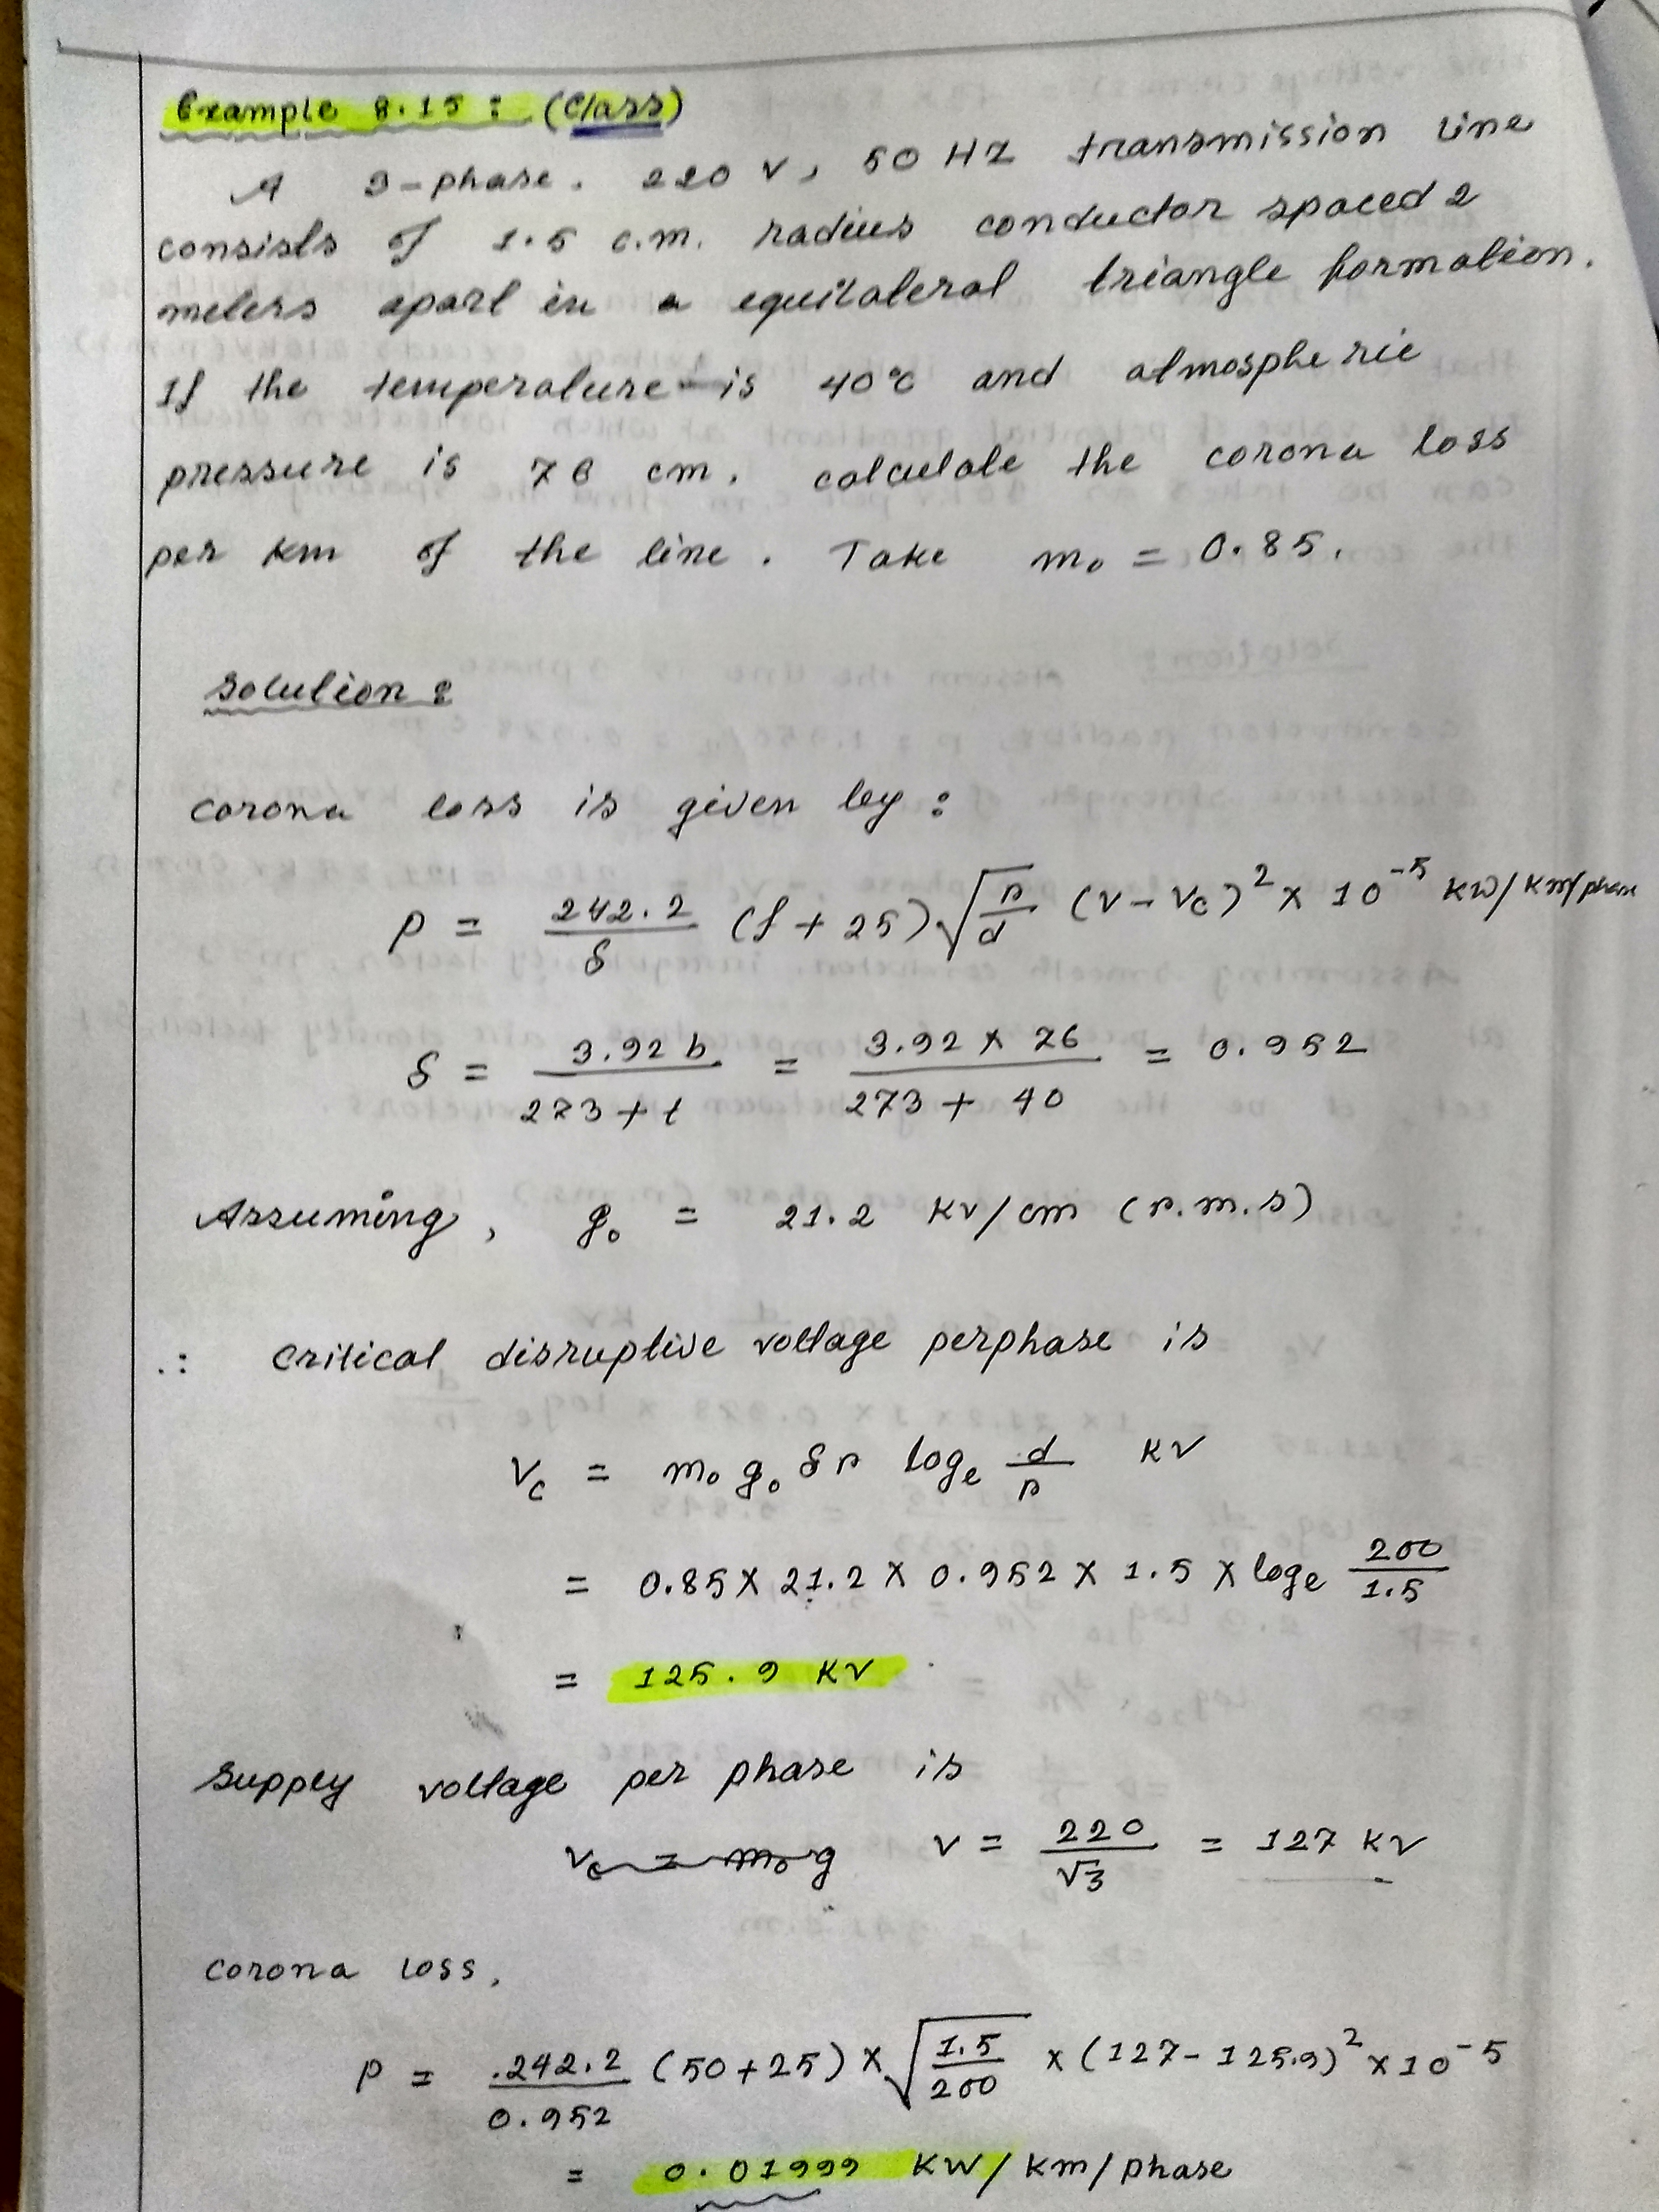 Example 8.15 : (Class)
A 3-phase. 220 V, 50 HZ transmission line
consists of 1.5 c.m. radius conductor spaced 2
meters apart in a equilateral triangle formation.
If the temperature is 40°C and atmospheric
pressure is 76 cm. calculate the corona loss
per km of the line. Take m₀ = 0.85.
Solution :
Corona loss is given by :
P = 242.2/δ (f + 25) √(r/d) (V - Vc)² × 10⁻⁵ kW/km/phase
δ = 3.92 b / 273 + t = 3.92 × 76 / 273 + 40 = 0.952
Assuming, g₀ = 21.2 KV/cm (r.m.s)
∴ Critical disruptive voltage perphase is
Vc = m₀ g₀ δ r logₑ d/r KV
= 0.85 × 21.2 × 0.952 × 1.5 × logₑ 200/1.5
= 125.9 KV
Supply voltage per phase is
Vc = m₀ g V = 220/√3 = 127 KV
Corona loss,
P = 242.2/0.952 (50 + 25) × √(1.5/200) × (127 - 125.9)² × 10⁻⁵
= 0.01999 KW/km/phase